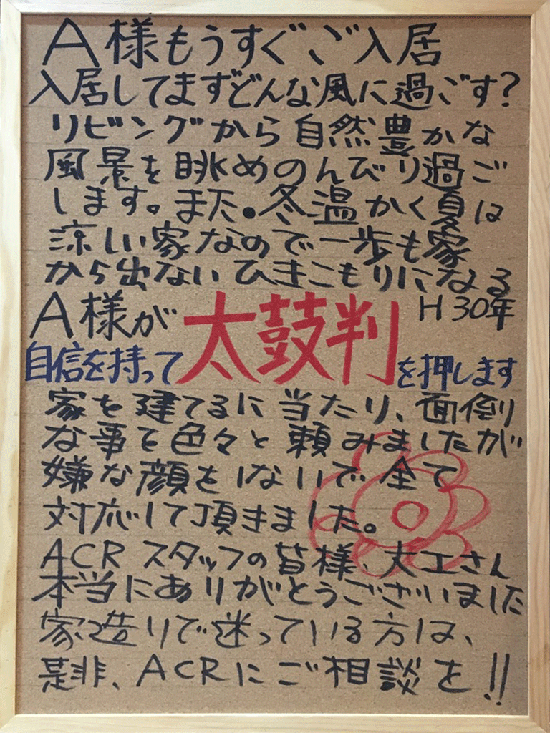 A様もうすぐご入居
入居してまずどんな風に過ごす?
リビングから自然豊かな
風景を眺めのんびり過ご
します。また。冬温かく夏は
涼しい家なので一歩も家
から出ないひきこもりになる
A様が
H30年
自信を持って太鼓判を押します
家を建てるに当たり、面倒
な事て色々と頼みましたが
嫌な顔をしないで全て
対応して頂きました。
ACRスタッフの皆様、大工さん
本当にありがとうございました
家造りで迷っている方は、
是非、ACRにご相談を!!